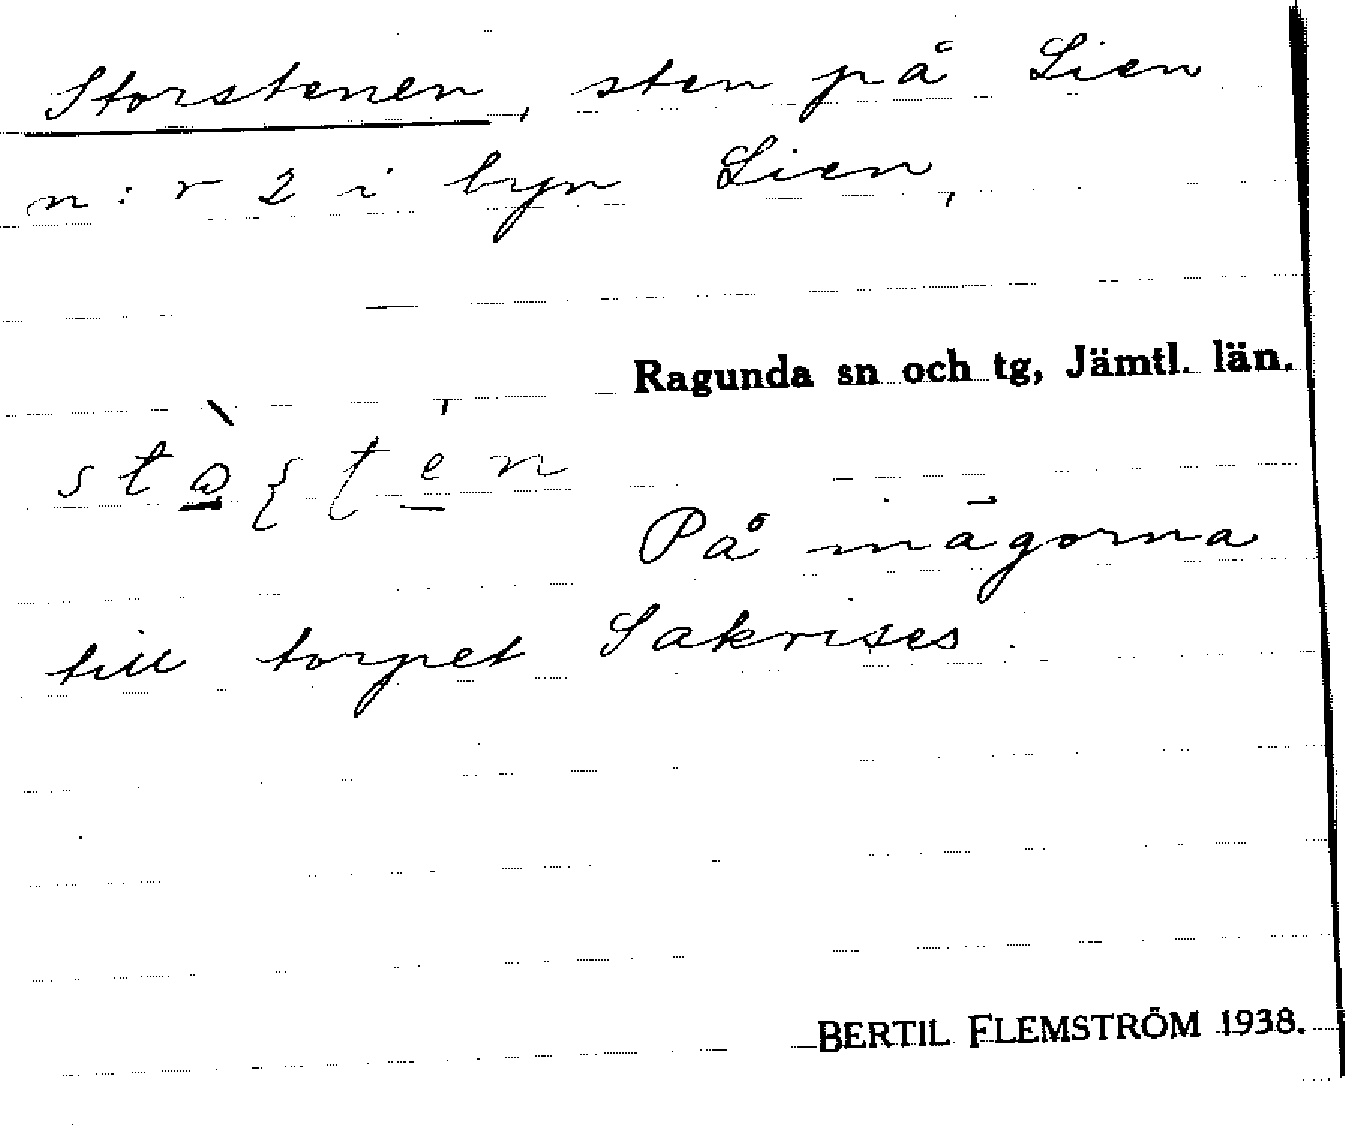 Storstenen, sten på Lien
n:r 2 i byn Lien,
Ragunda sn och tg, Jämtl. län.
På inägorna
till torpet Sakrises.
BERTIL FLEMSTRÖM 1938.